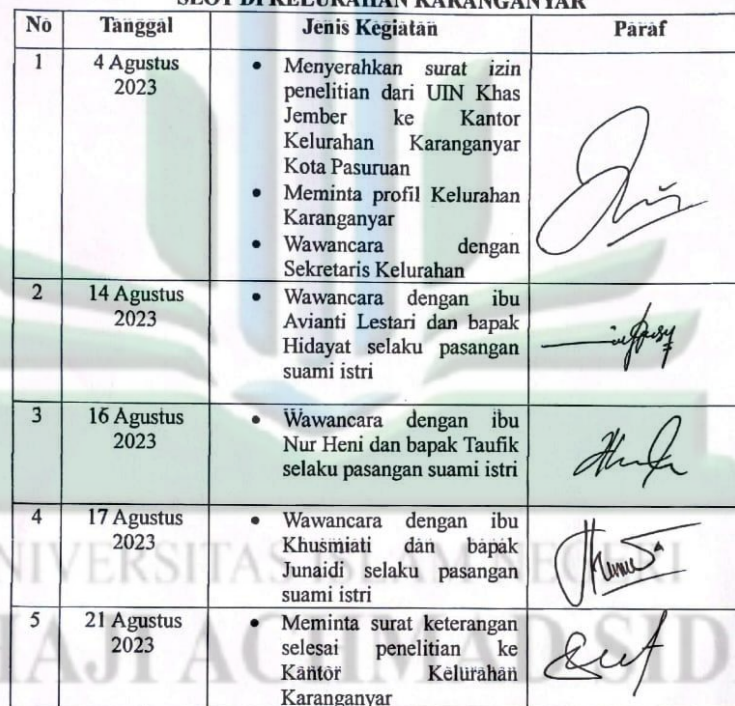 SLOT DI KELURAHAN KARANGANYAR
No Tanggal Jenis Kegiatan Paraf
1 4 Agustus 2023
• Menyerahkan surat izin
penelitian dari UIN Khas
Jember ke Kantor
Kelurahan Karanganyar
Kota Pasuruan
• Meminta profil Kelurahan
Karanganyar
• Wawancara dengan
Sekretaris Kelurahan
2 14 Agustus 2023
• Wawancara dengan ibu
Avianti Lestari dan bapak
Hidayat selaku pasangan
suami istri
3 16 Agustus 2023
• Wawancara dengan ibu
Nur Heni dan bapak Taufik
selaku pasangan suami istri
4 17 Agustus 2023
• Wawancara dengan ibu
Khusmiati dan bapak
Junaidi selaku pasangan
suami istri
5 21 Agustus 2023
• Meminta surat keterangan
selesai penelitian ke
Kantor Kelurahan
Karanganyar
NIVERSITAS ISLAM NEGERI
HAJI ACHMAD SID